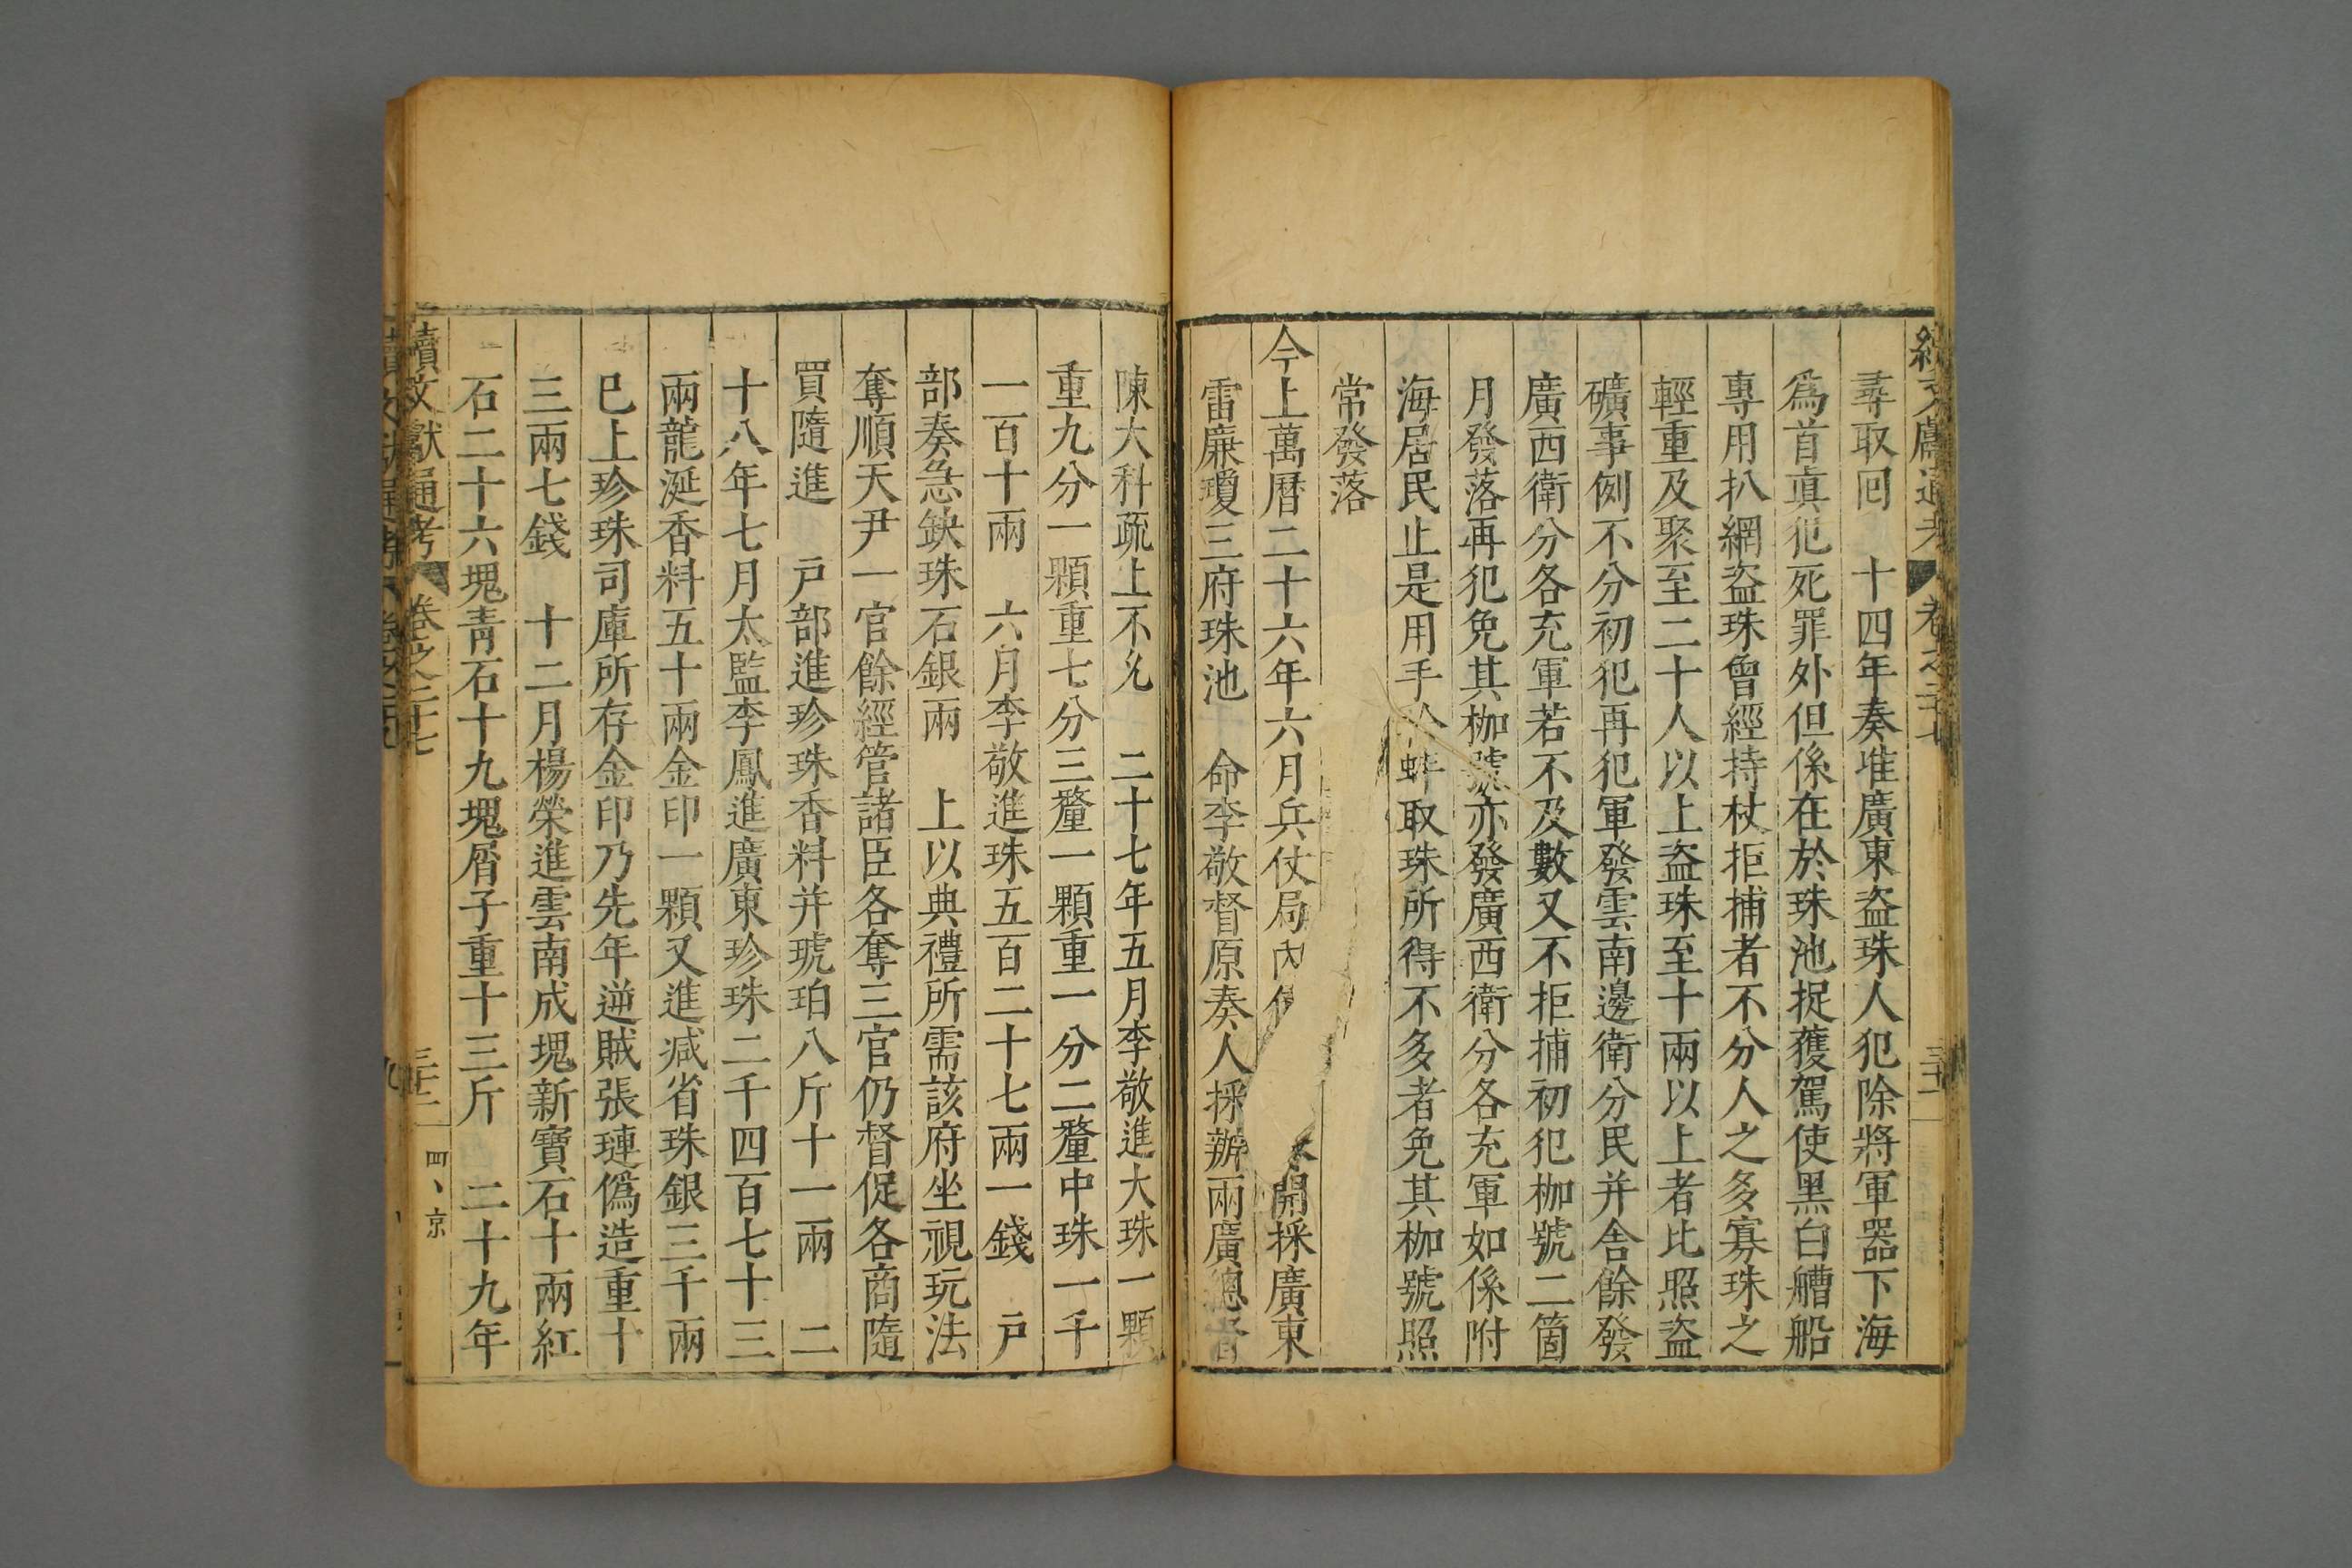 續文獻通考 卷之二十七 三十一
尋取回 十四年奏准廣東盗珠人犯除將軍器下海
爲首真犯死罪外但係在於珠池捉獲駕使黑白艚船
專用扒網盗珠曾經持杖拒捕者不分人之多寡珠之
輕重及聚至二十人以上盗珠至十兩以上者比照盗
礦事例不分初犯再犯軍發雲南邊衛分民并舍餘發
廣西衛分各充軍若不及數又不拒捕初犯枷號二箇
月發落再犯免其枷號亦發廣西衛分各充軍如係附
海居民止是用手 蚌取珠所得不多者免其枷號照
常發落
今上萬曆二十六年六月兵仗局內 開採廣東
雷廉瓊三府珠池 命李敬督原奏人採辦兩廣總督
陳大科疏上不允 二十七年五月李敬進大珠一顆
重九分一顆重七分三釐一顆重一分二釐中珠一千
一百十兩 六月李敬進珠五百二十七兩一錢 戸
部奏急缺珠石銀兩 上以典禮所需該府坐視玩法
奪順天尹一官餘經管諸臣各奪三官仍督促各商隨
買隨進 戸部進珍珠香料并琥珀八斤十一兩 二
十八年七月太監李鳳進廣東珍珠二千四百七十三
兩龍涎香料五十兩金印一顆又進減省珠銀三千兩
巳上珍珠司庫所存金印乃先年逆賊張璉僞造重十
三兩七錢 十二月楊榮進雲南成塊新寶石十兩紅
石二十六塊青石十九塊屑子重十三斤 二十九年
續文獻通考 卷之二十七 三十二 四、京